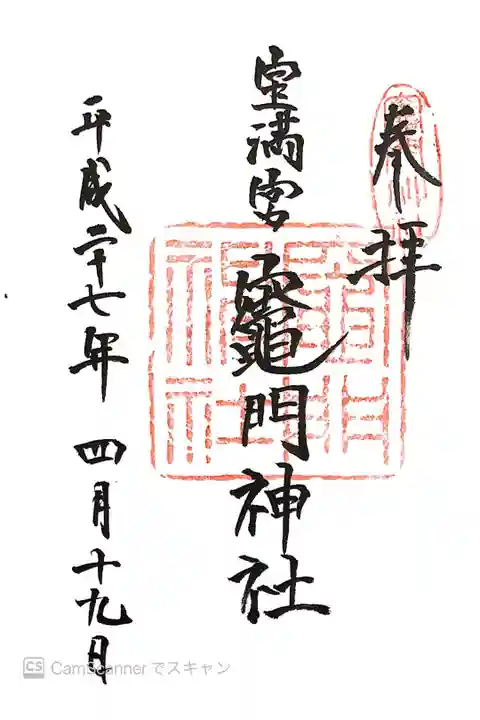 奉拝
宝満宮 竈門神社
平成二十七年 四月十九日
CS CamScanner でスキャン